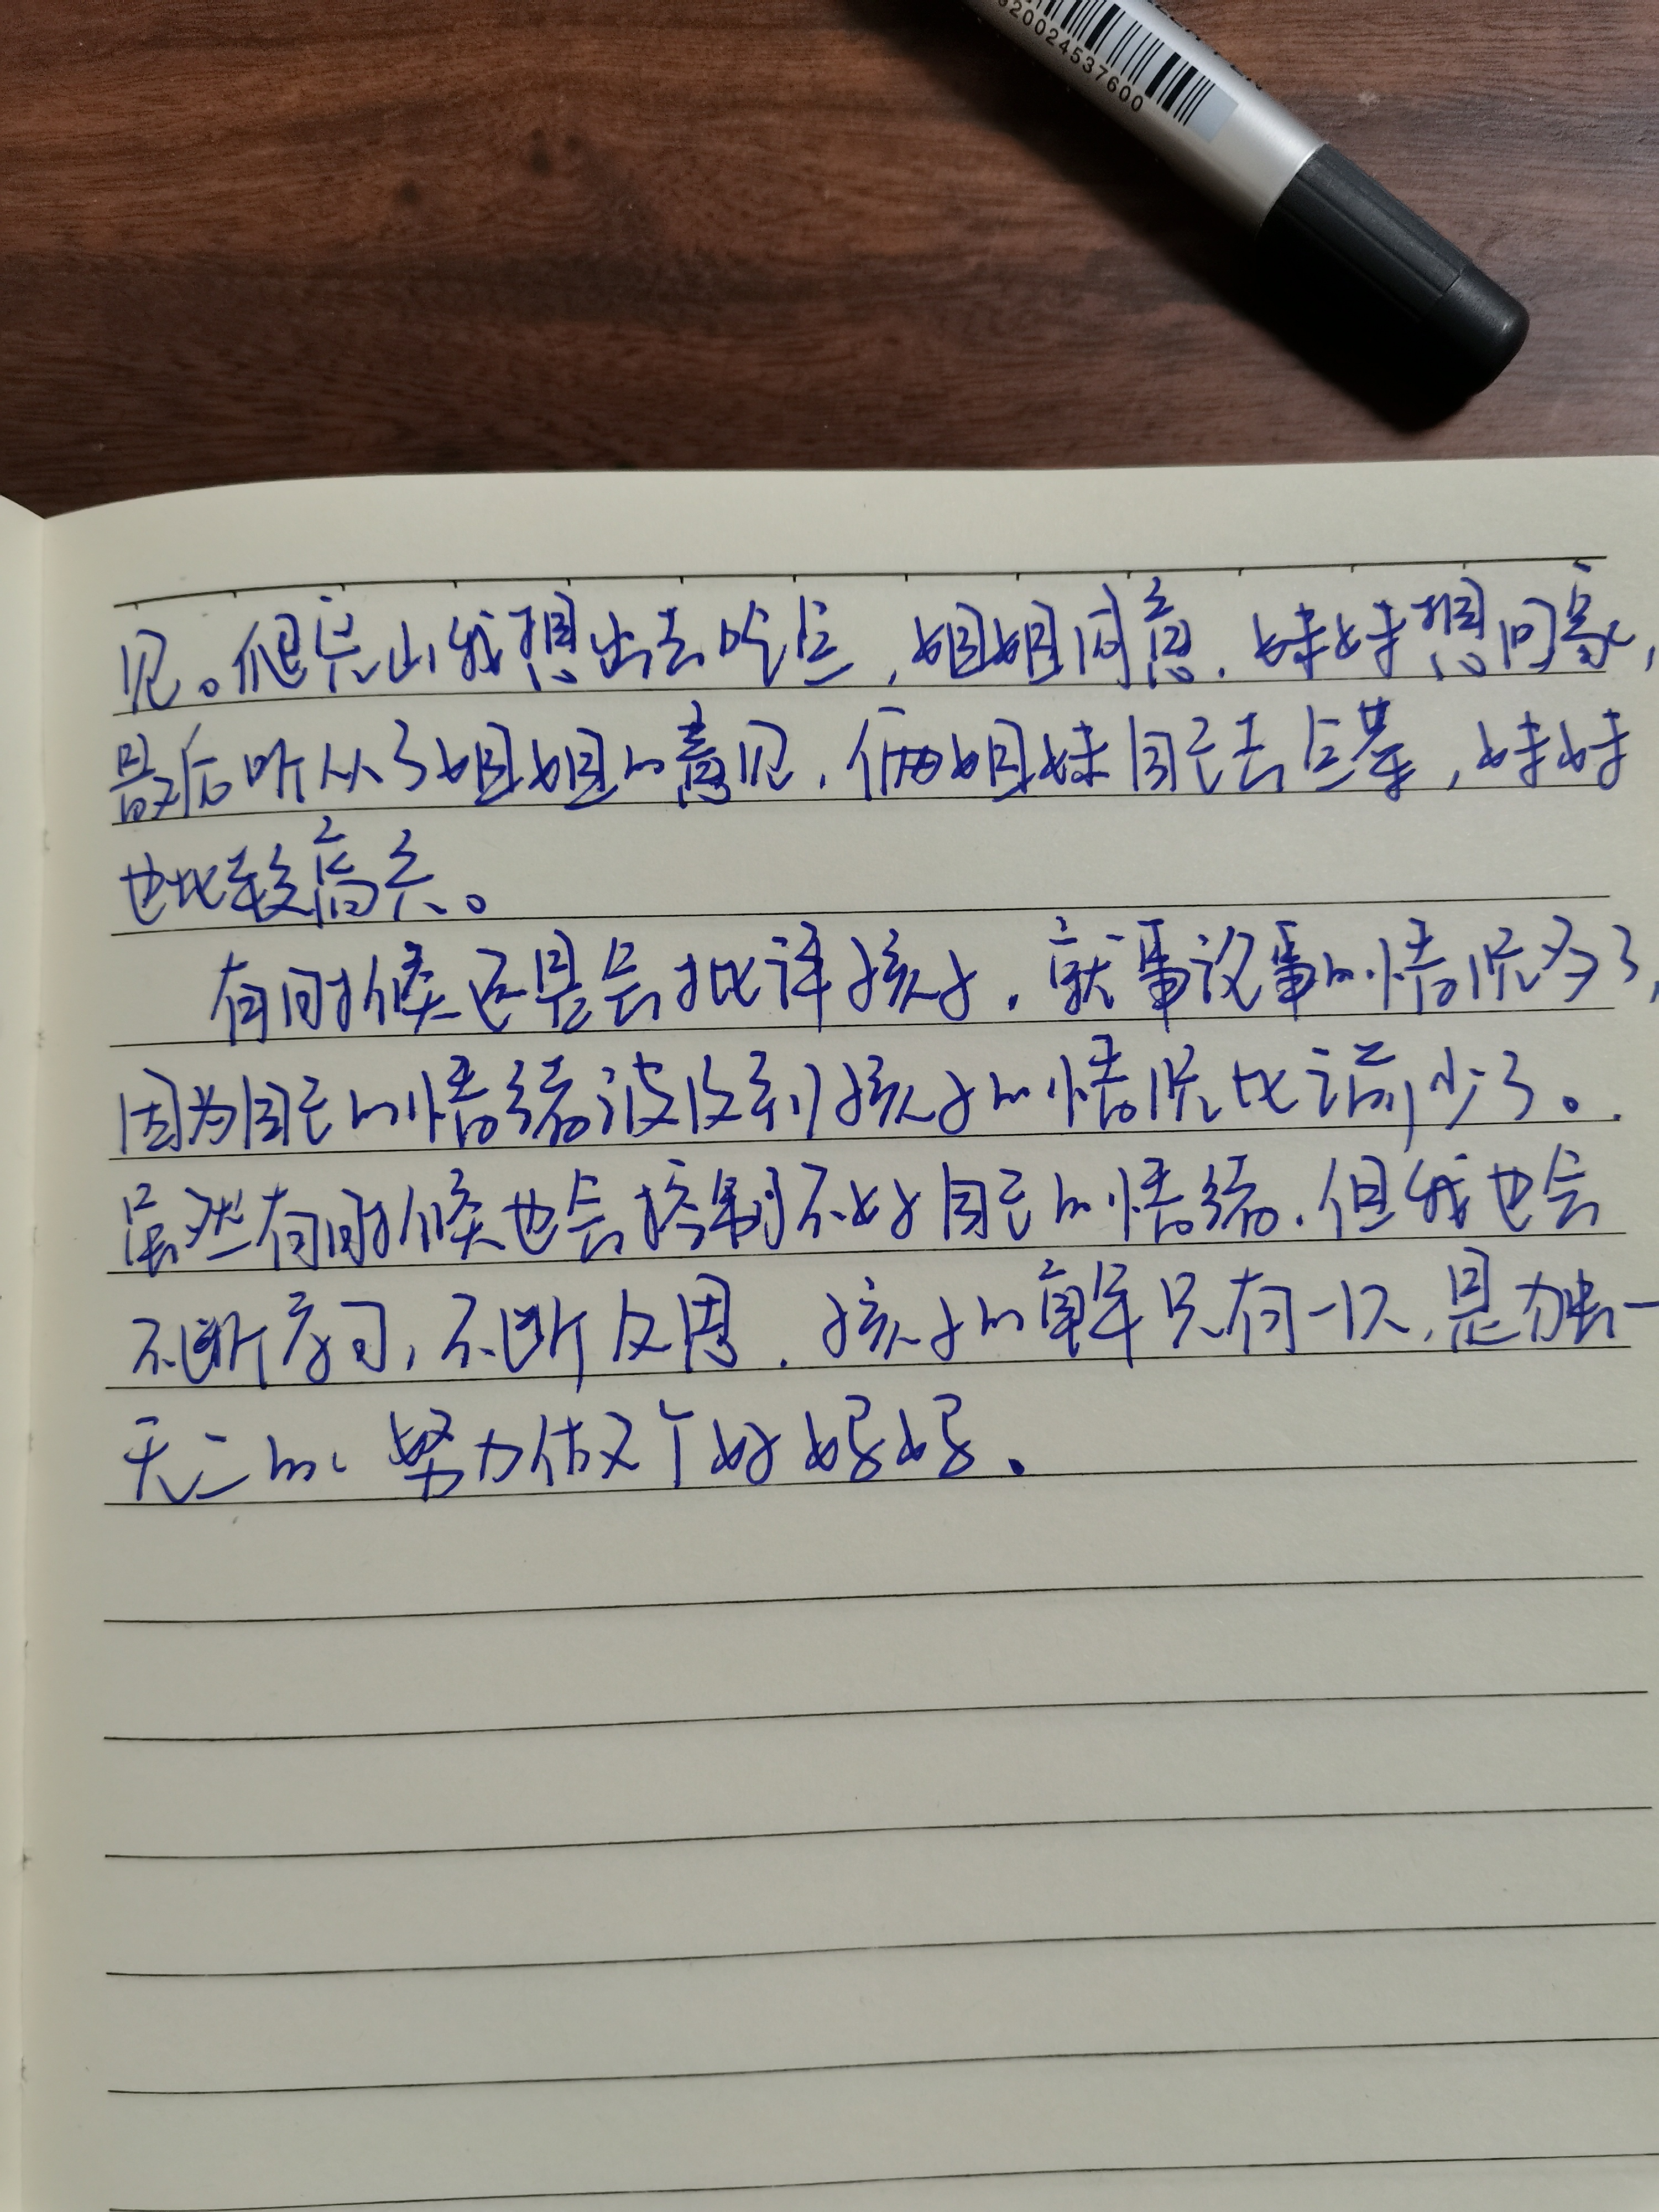 320024537600
见。爬完山我想出去吃点,姐姐同意.妹妹想回家,
最后听从了姐姐的意见.俩姐妹自己去点单,妹妹
也比较高兴。
有时候还是会批评孩子.就事议事的情况多了,
因为自己的情绪波及到孩子的情况比以前少了。
虽然有时候也会控制不好自己的情绪.但我也会
不断学习,不断反思.孩子的童年只有一次,是独一
无二的、努力做个好妈妈.